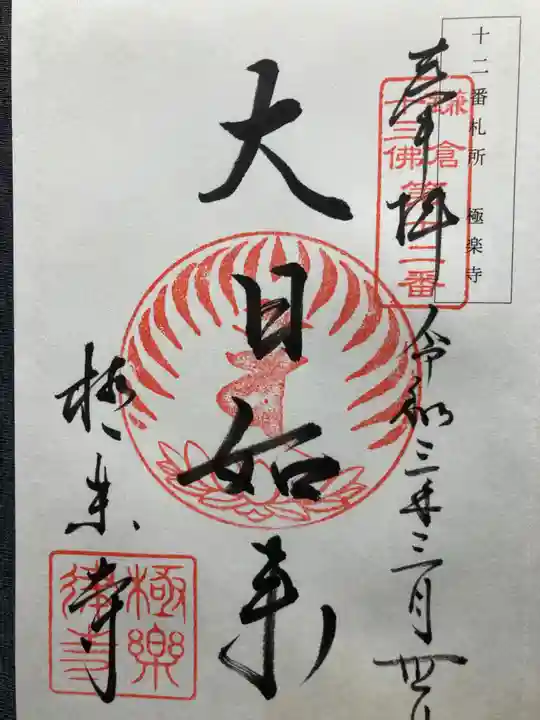 十二番札所 極楽寺
奉拝
鎌倉
十三佛
第十二番
令和三年三月廿四日
大日如来
極楽寺
極樂